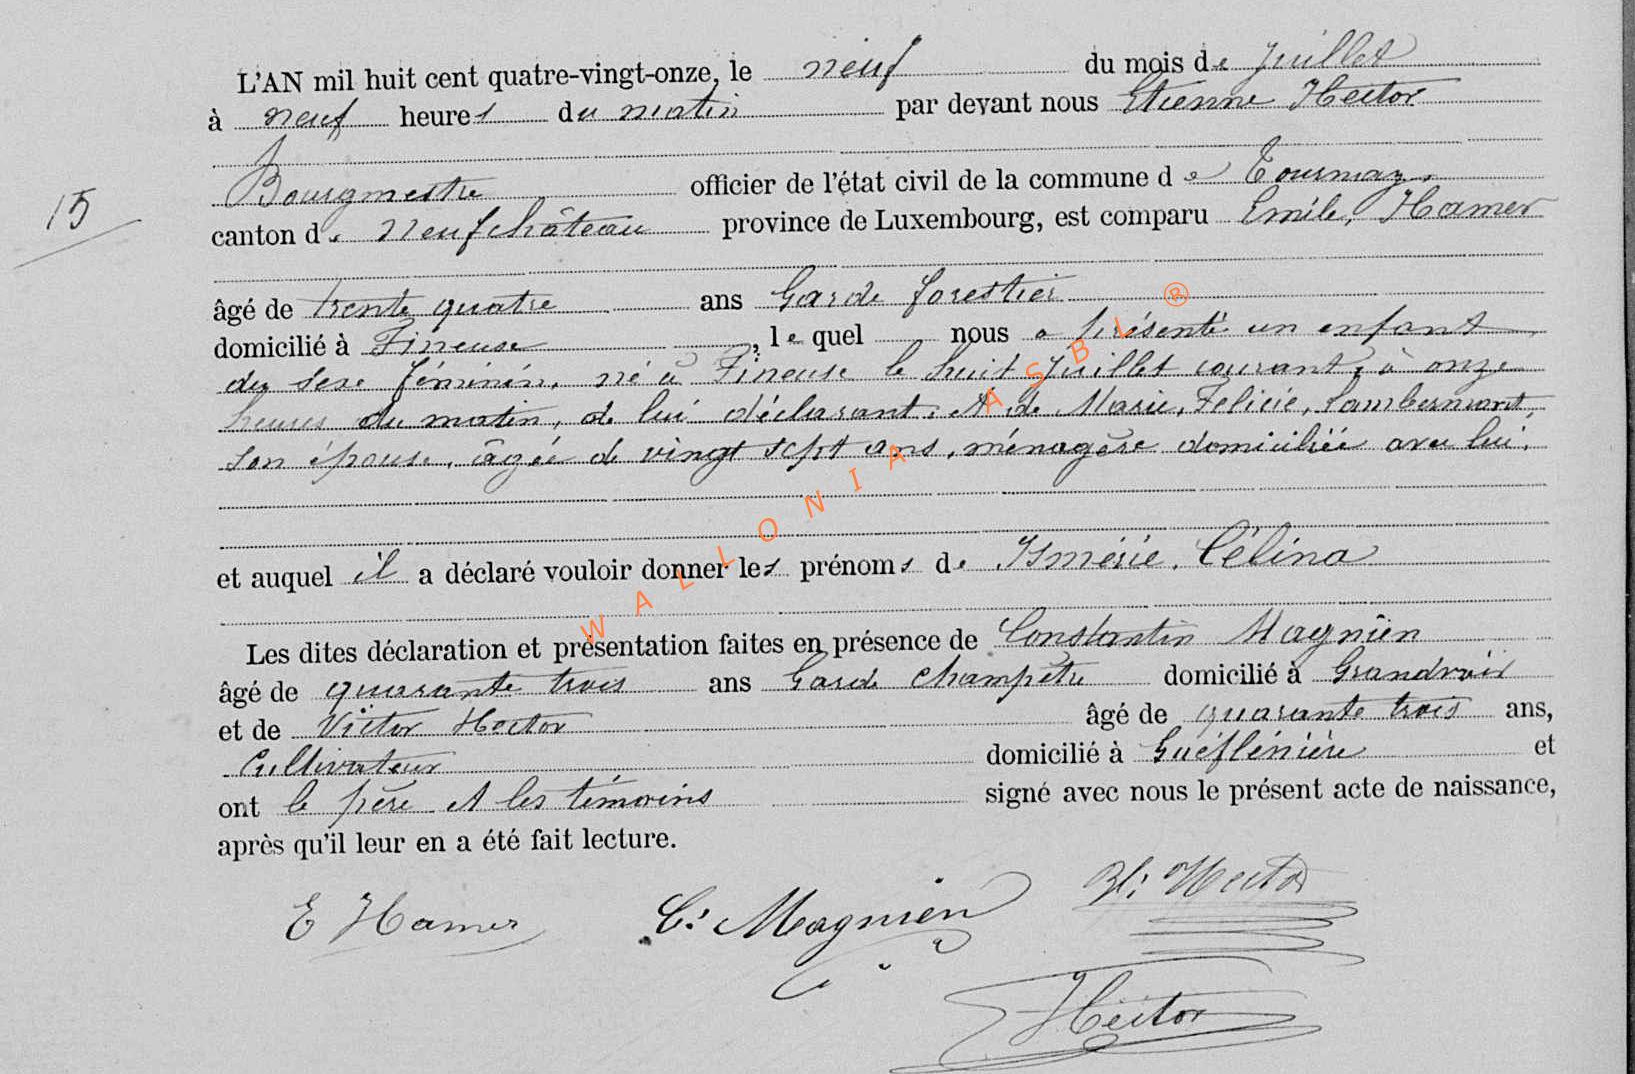 L'AN mil huit cent quatre-vingt-onze, le neuf du mois de Juillet
à neuf heures du matin par devant nous Etienne Hector
Bourgmestre officier de l'état civil de la commune de Tournay,
15
canton de Neufchâteau province de Luxembourg, est comparu Emile, Hamer
âgé de trente quatre ans Garde forestier
domicilié à Fineuse, lequel nous a présenté un enfant
du sexe féminin, né à Fineuse le huit Juillet courant, à onze
heures du matin, de lui déclarant, et de Marie, Felicie, Lambermont,
son épouse, âgée de vingt sept ans, ménagère domiciliée avec lui,
et auquel il a déclaré vouloir donner les prénoms de Ismérie, Célina
Les dites déclaration et présentation faites en présence de Constantin Magnien
âgé de quarante trois ans Garde champêtre domicilié à Grandvoir
et de Victor Hector âgé de quarante trois ans,
Cultivateur domicilié à et
ont le père et les témoins signé avec nous le présent acte de naissance,
après qu'il leur en a été fait lecture.
E Hamer C: Magnien Hector
Hector
WALLONIA ASBL ®